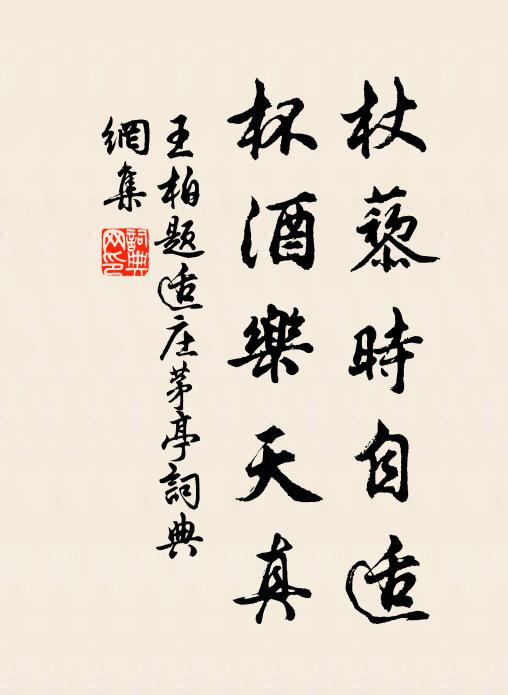 杖藜時自适
杯酒樂天真
王柏题适庄茅亭詞典
網集
詞典
网印